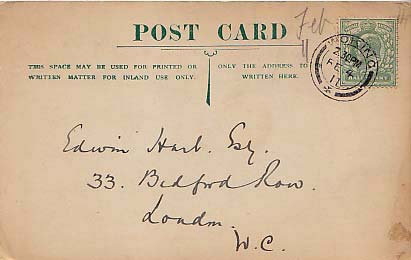 POST CARD
Feb
11
THIS SPACE MAY BE USED FOR PRINTED OR
WRITTEN MATTER FOR INLAND USE ONLY.
ONLY THE ADDRESS TO
WRITTEN HERE.
WOKING
FE
11
Edwin Hart. Esq.
33. Bedford Row.
London.
W.C.